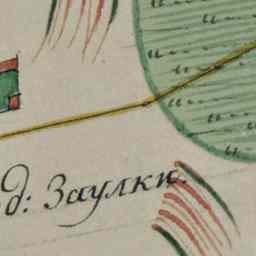 д: Заулки.